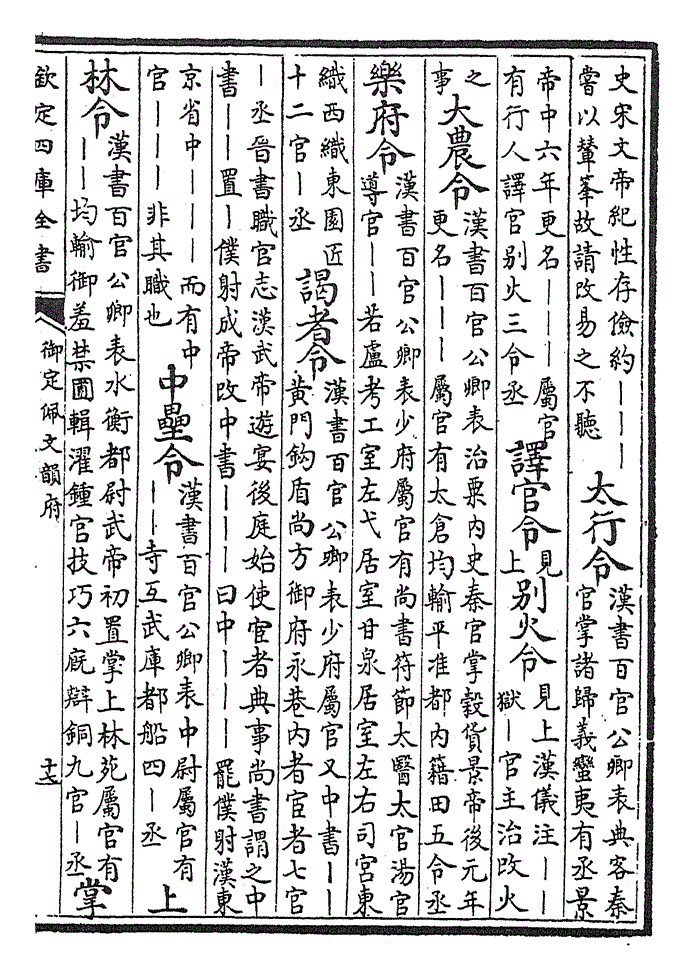 史宋文帝紀性存儉約｜｜｜
嘗以輦輋故請改易之不聽
太行令
漢書百官公卿表典客秦
官掌諸歸義蠻夷有丞景
帝中六年更名｜｜｜屬官
有行人譯官别火三令丞
譯官令
見
上
别火令
見上漢儀注｜｜
獄｜官主治改火
之
事
大農令
漢書百官公卿表治粟内史秦官掌穀貨景帝後元年
更名｜｜｜屬官有太倉均輸平准都内籍田五令丞
樂府令
漢書百官公卿表少府屬官有尚書符節太醫太官湯官
導官｜｜若盧考工室左弋居室甘泉居室左右司宫東
織西織東園匠
十二官｜丞
謁者令
漢書百官公卿表少府屬官又中書｜｜
黄門鈎盾尚方御府永巷内者宦者七官
｜丞晉書職官志漢武帝遊宴後庭始使宦者典事尚書謂之中
書｜｜置｜僕射成帝改中書｜｜｜曰中｜｜｜罷僕射漢東
京省中｜｜｜而有中
官｜｜｜非其職也
中壘令
漢書百官公卿表中尉屬官有
｜｜寺互武庫都船四｜丞
上
林令
漢書百官公卿表水衡都尉武帝初置掌上林苑屬官有
｜｜均輸御羞禁圃輯濯鍾官技巧六廐辯銅九官｜丞
掌
欽定四庫全書
御定佩文韻府
十七